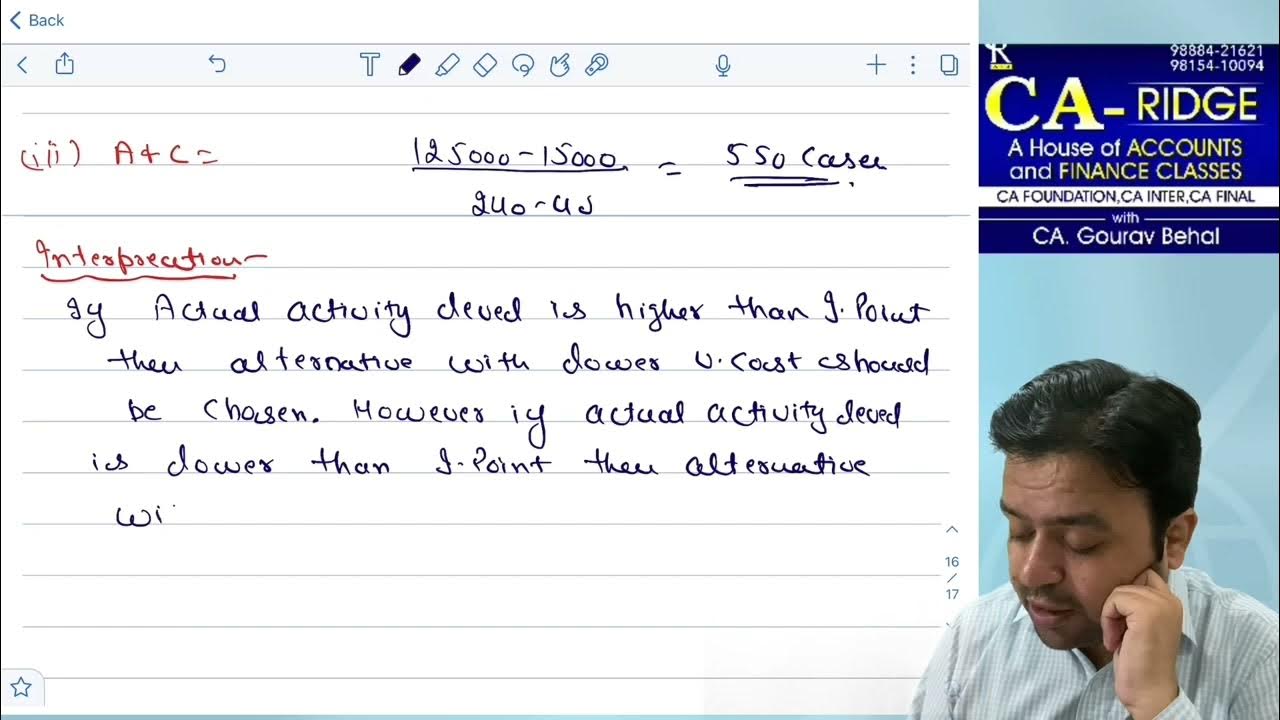 Back
(iii) A & C = 125000 - 15000 / 240 - 40 = 550 Cases
Interpretation -
If Actual activity level is higher than I. Point
then alternative with lower V. Cost should
be Chosen. However if actual activity level
is lower than I. Point then alternative
wi
16
/
17
98884-21621
98154-10094
CA- RIDGE
A House of ACCOUNTS
and FINANCE CLASSES
CA FOUNDATION,CA INTER,CA FINAL
with
CA. Gourav Behal